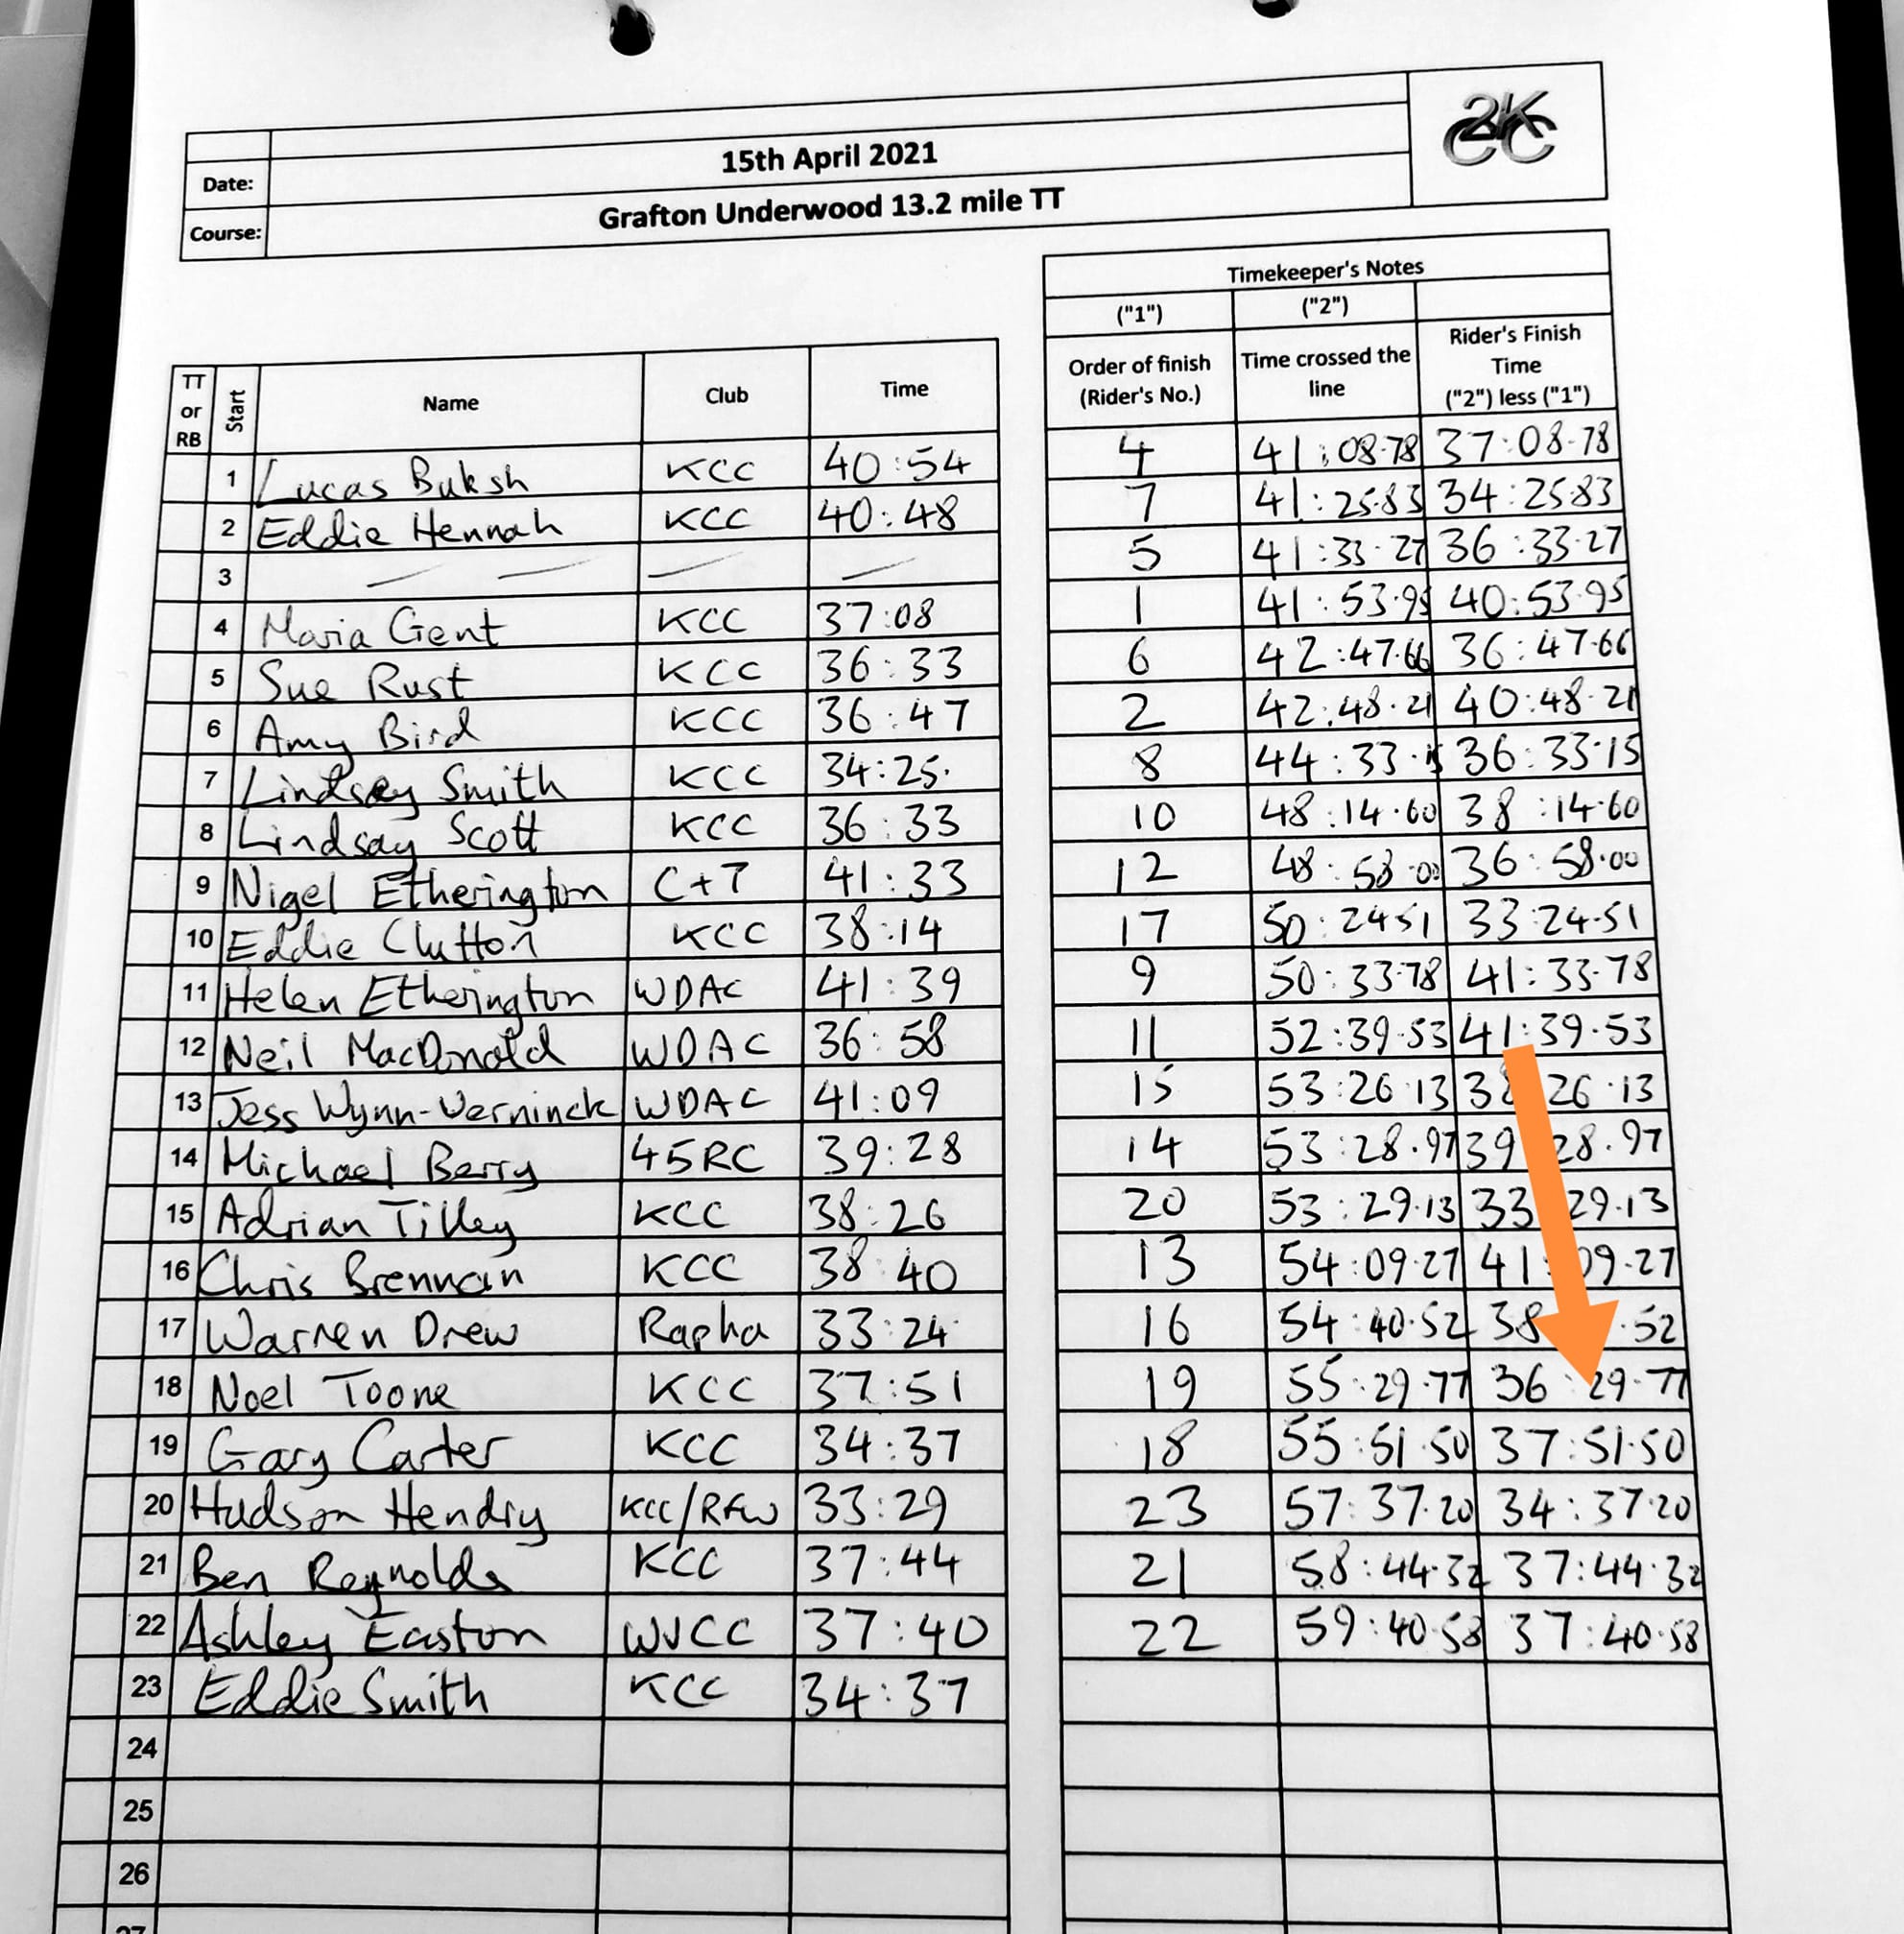 2KCC
Date: 15th April 2021
Course: Grafton Underwood 13.2 mile TT
Timekeeper's Notes
("1") ("2")
Order of finish (Rider's No.) Time crossed the line Rider's Finish Time ("2") less ("1")
TT or RB Start Name Club Time
1 Lucas Buksh KCC 40:54
2 Eddie Hennah KCC 40:48
3
4 Maria Gent KCC 37:08
5 Sue Rust KCC 36:33
6 Amy Bird KCC 36:47
7 Lindsey Smith KCC 34:25.
8 Lindsay Scott KCC 36:33
9 Nigel Etherington C+T 41:33
10 Eddie Clutton KCC 38:14
11 Helen Etherington WDAC 41:39
12 Neil MacDonald WDAC 36:58
13 Jess Wynn-Verninck WDAC 41:09
14 Michael Berry 45RC 39:28
15 Adrian Tilley KCC 38:26
16 Chris Brennan KCC 38:40
17 Warren Drew Rapha 33:24
18 Noel Toone KCC 37:51
19 Gary Carter KCC 34:37
20 Hudson Hendry KCC/RFW 33:29
21 Ben Reynolds KCC 37:44
22 Ashley Easton WVCC 37:40
23 Eddie Smith KCC 34:37
24
25
26
27
4 41:08.78 37:08.78
7 41:25.83 34:25.83
5 41:33.27 36:33.27
1 41:53.95 40:53.95
6 42:47.66 36:47.66
2 42:48.21 40:48.21
8 44:33.15 36:33.15
10 48:14.60 38:14.60
12 48:58.00 36:58.00
17 50:24 51 33:24.51
9 50:33.78 41:33.78
11 52:39.53 41:39.53
15 53:26.13 38 26.13
14 53:28.97 39 28.97
20 53:29.13 33 29.13
13 54:09.27 41:09.27
16 54:40.52 38 .52
19 55:29.77 36:29.77
18 55:51.50 37:51.50
23 57:37.20 34:37.20
21 58:44.32 37:44.32
22 59:40.58 37:40.58